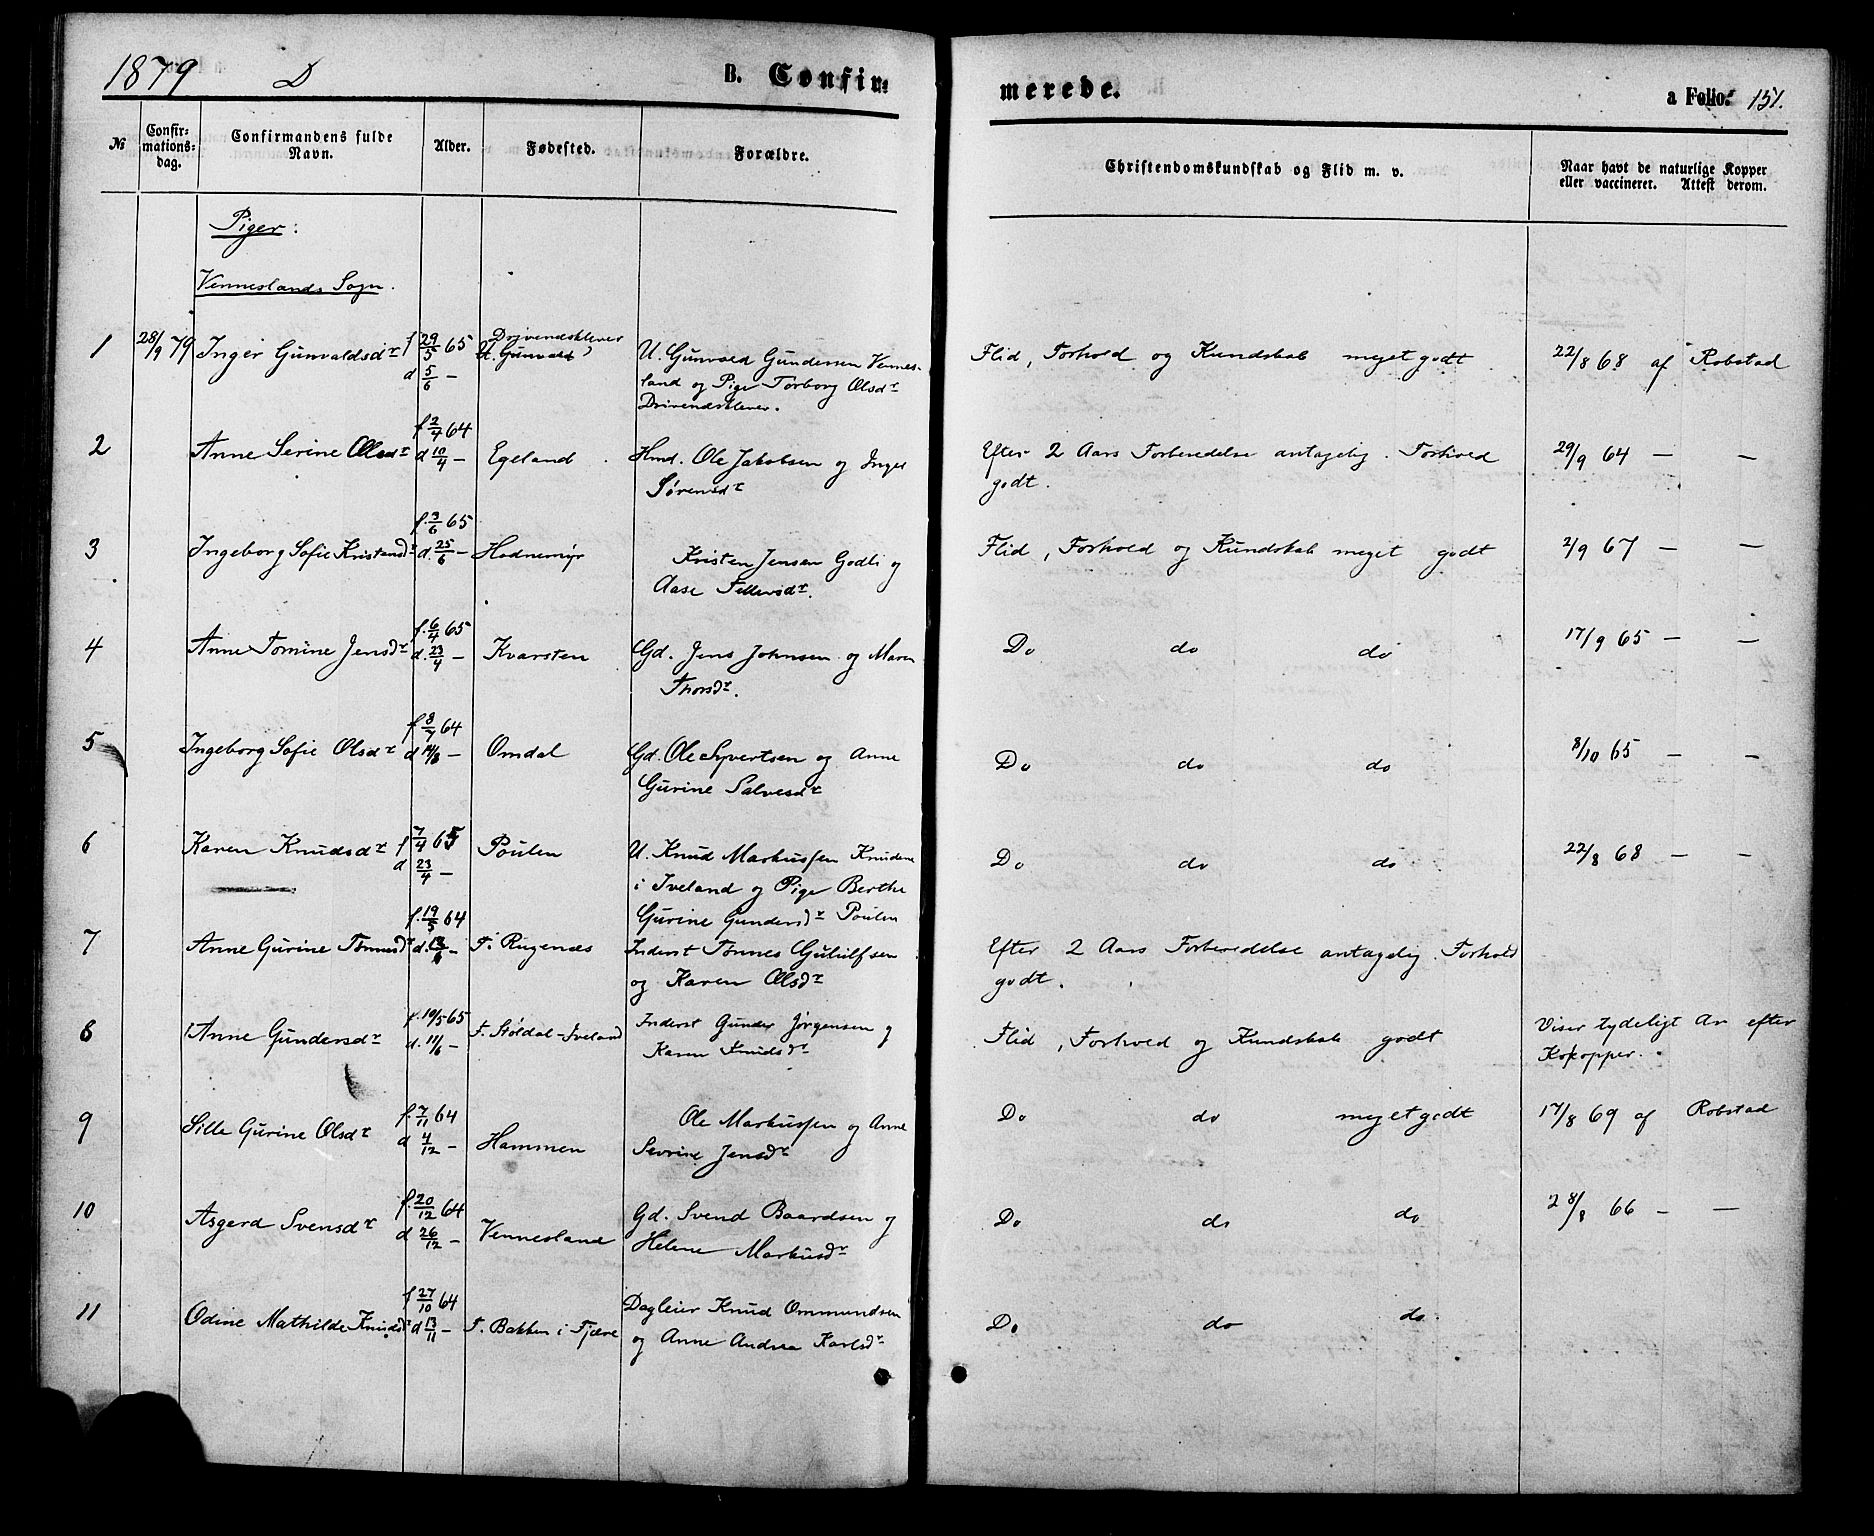 1879 D B. Confir= merede. a Folio: 151.
№ Confir=mations=dag. Confirmandens fulde Navn. Alder. Fødested. Forældre. Christendomskundskab og Flid m. v. Naar havt de naturlige Kopper eller vaccineret. Attest derom.
Piger:
Venneslands Sogn.
1 28/9 79 Inger Gunvaldsdr f 29/5 65 Drivendeskleven U. Gunvald Gundersen Vennes- Flid, Forhold og Kundskab meget godt 22/8 68 af Robstad
d 5/6 — land og Pige Torborg Olsdr
Drivendeskleven.
2 Anne Serine Olsdr f 2/4 64 d 10/4 — Egeland Hmd. Ole Jakobsen og Inger Efter 2 Aars Forberedelse antagelig. Forhold 29/9 64 — —
Sørensdr godt.
3 Ingeborg Sofie Kristensdr f. 3/6 65 d. 25/6 — Hodnemyr Kristen Jensen Godli og Flid, Forhold og Kundskab meget godt 2/9 67 — —
Aase Tellersdr.
4 Anne Tomine Jensdr f. 6/4 65 d. 23/4 — Kvarsten Gd. Jens Johnsen og Maren Do do do 17/9 65 — —
Thorsdr.
5 Ingeborg Sofie Olsdr f 8/7 64 d 14/8 — Omdal Gd. Ole Syvertsen og Anne Do do do 8/10 65 — —
Gurine Salvesdr
6 Karen Knudsdr f 7/4 65 d 23/4 — Poulen U. Knud Markussen Knudene Do do do 22/8 68 — —
i Iveland og Pige Berthe
Gurine Gundersdr Poulen
7 Anne Gurine Tønnesdr f. 19/5 64 d. 13/6 — F. Rugenæs Inderst Tønnes Gjululfsen Efter 2 Aars Forberedelse antagelig. Forhold
og Karen Olsdr godt.
8 Anne Gundersdr f. 10/5 65 d. 11/6 — F. Støldal-Iveland Inderst Gunder Jørgensen og Flid, Forhold og Kundskab godt Viser tydeligt Ar efter
Karen Knudsdr Kokopper.
9 Sille Gurine Olsdr f. 7/11 64 d 4/12 — Hammen Ole Markussen og Anne Do do meget godt 17/8 69 af Robstad
Sevrine Jensdr
10 Asgerd Svensdr f. 20/12 64 d 26/12 — Vennesland Gd. Svend Baardsen og Do do do 28/8 66 — —
Helene Markusdr
11 Odine Mathilde Knudsdr f 27/10 64 d 13/11 — F. Bakken i Fjære Dagleier Knud Ommundsen Do do do.
og Anne Andrea Karlsdr